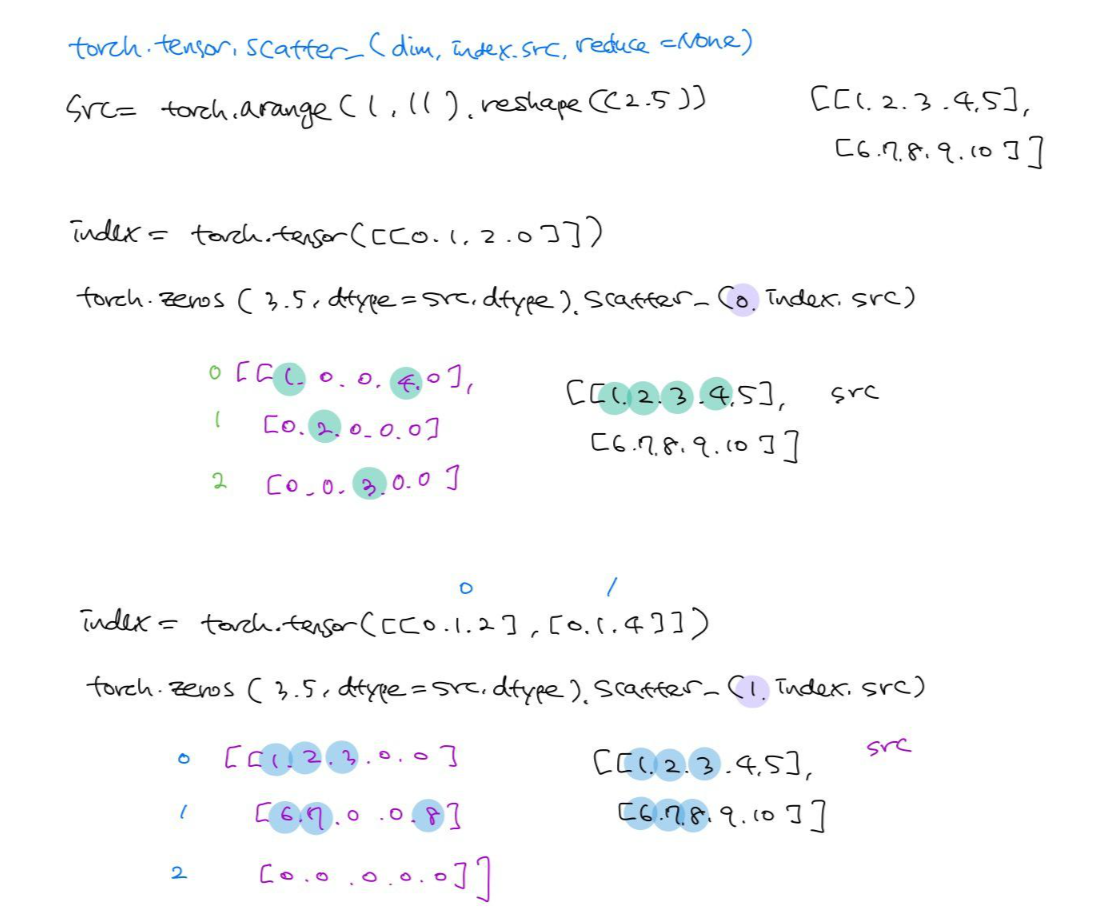 torch.tensor.scatter_(dim, index.src, reduce=None)
src= torch.arange(1,11).reshape((2.5)) [[1.2.3.4,5],
[6.7,8.9.10]]
index = torch.tensor([[0.1,2.0]])
torch.zeros(3.5,dtype=src.dtype).scatter_(0.index.src)
0 [[1.0.0.4.0], [[1.2.3.4,5], src
1 [0.2.0.0.0] [6.7,8.9.10]]
2 [0.0.3.0.0]
0 1
index = torch.tensor([[0.1.2],[0.1.4]])
torch.zeros(3.5,dtype=src.dtype).scatter_(1.index.src)
0 [[1.2.3.0.0] [[1.2.3.4,5], src
1 [6.7.0.0.8] [6.7,8.9.10]]
2 [0.0.0.0.0]]